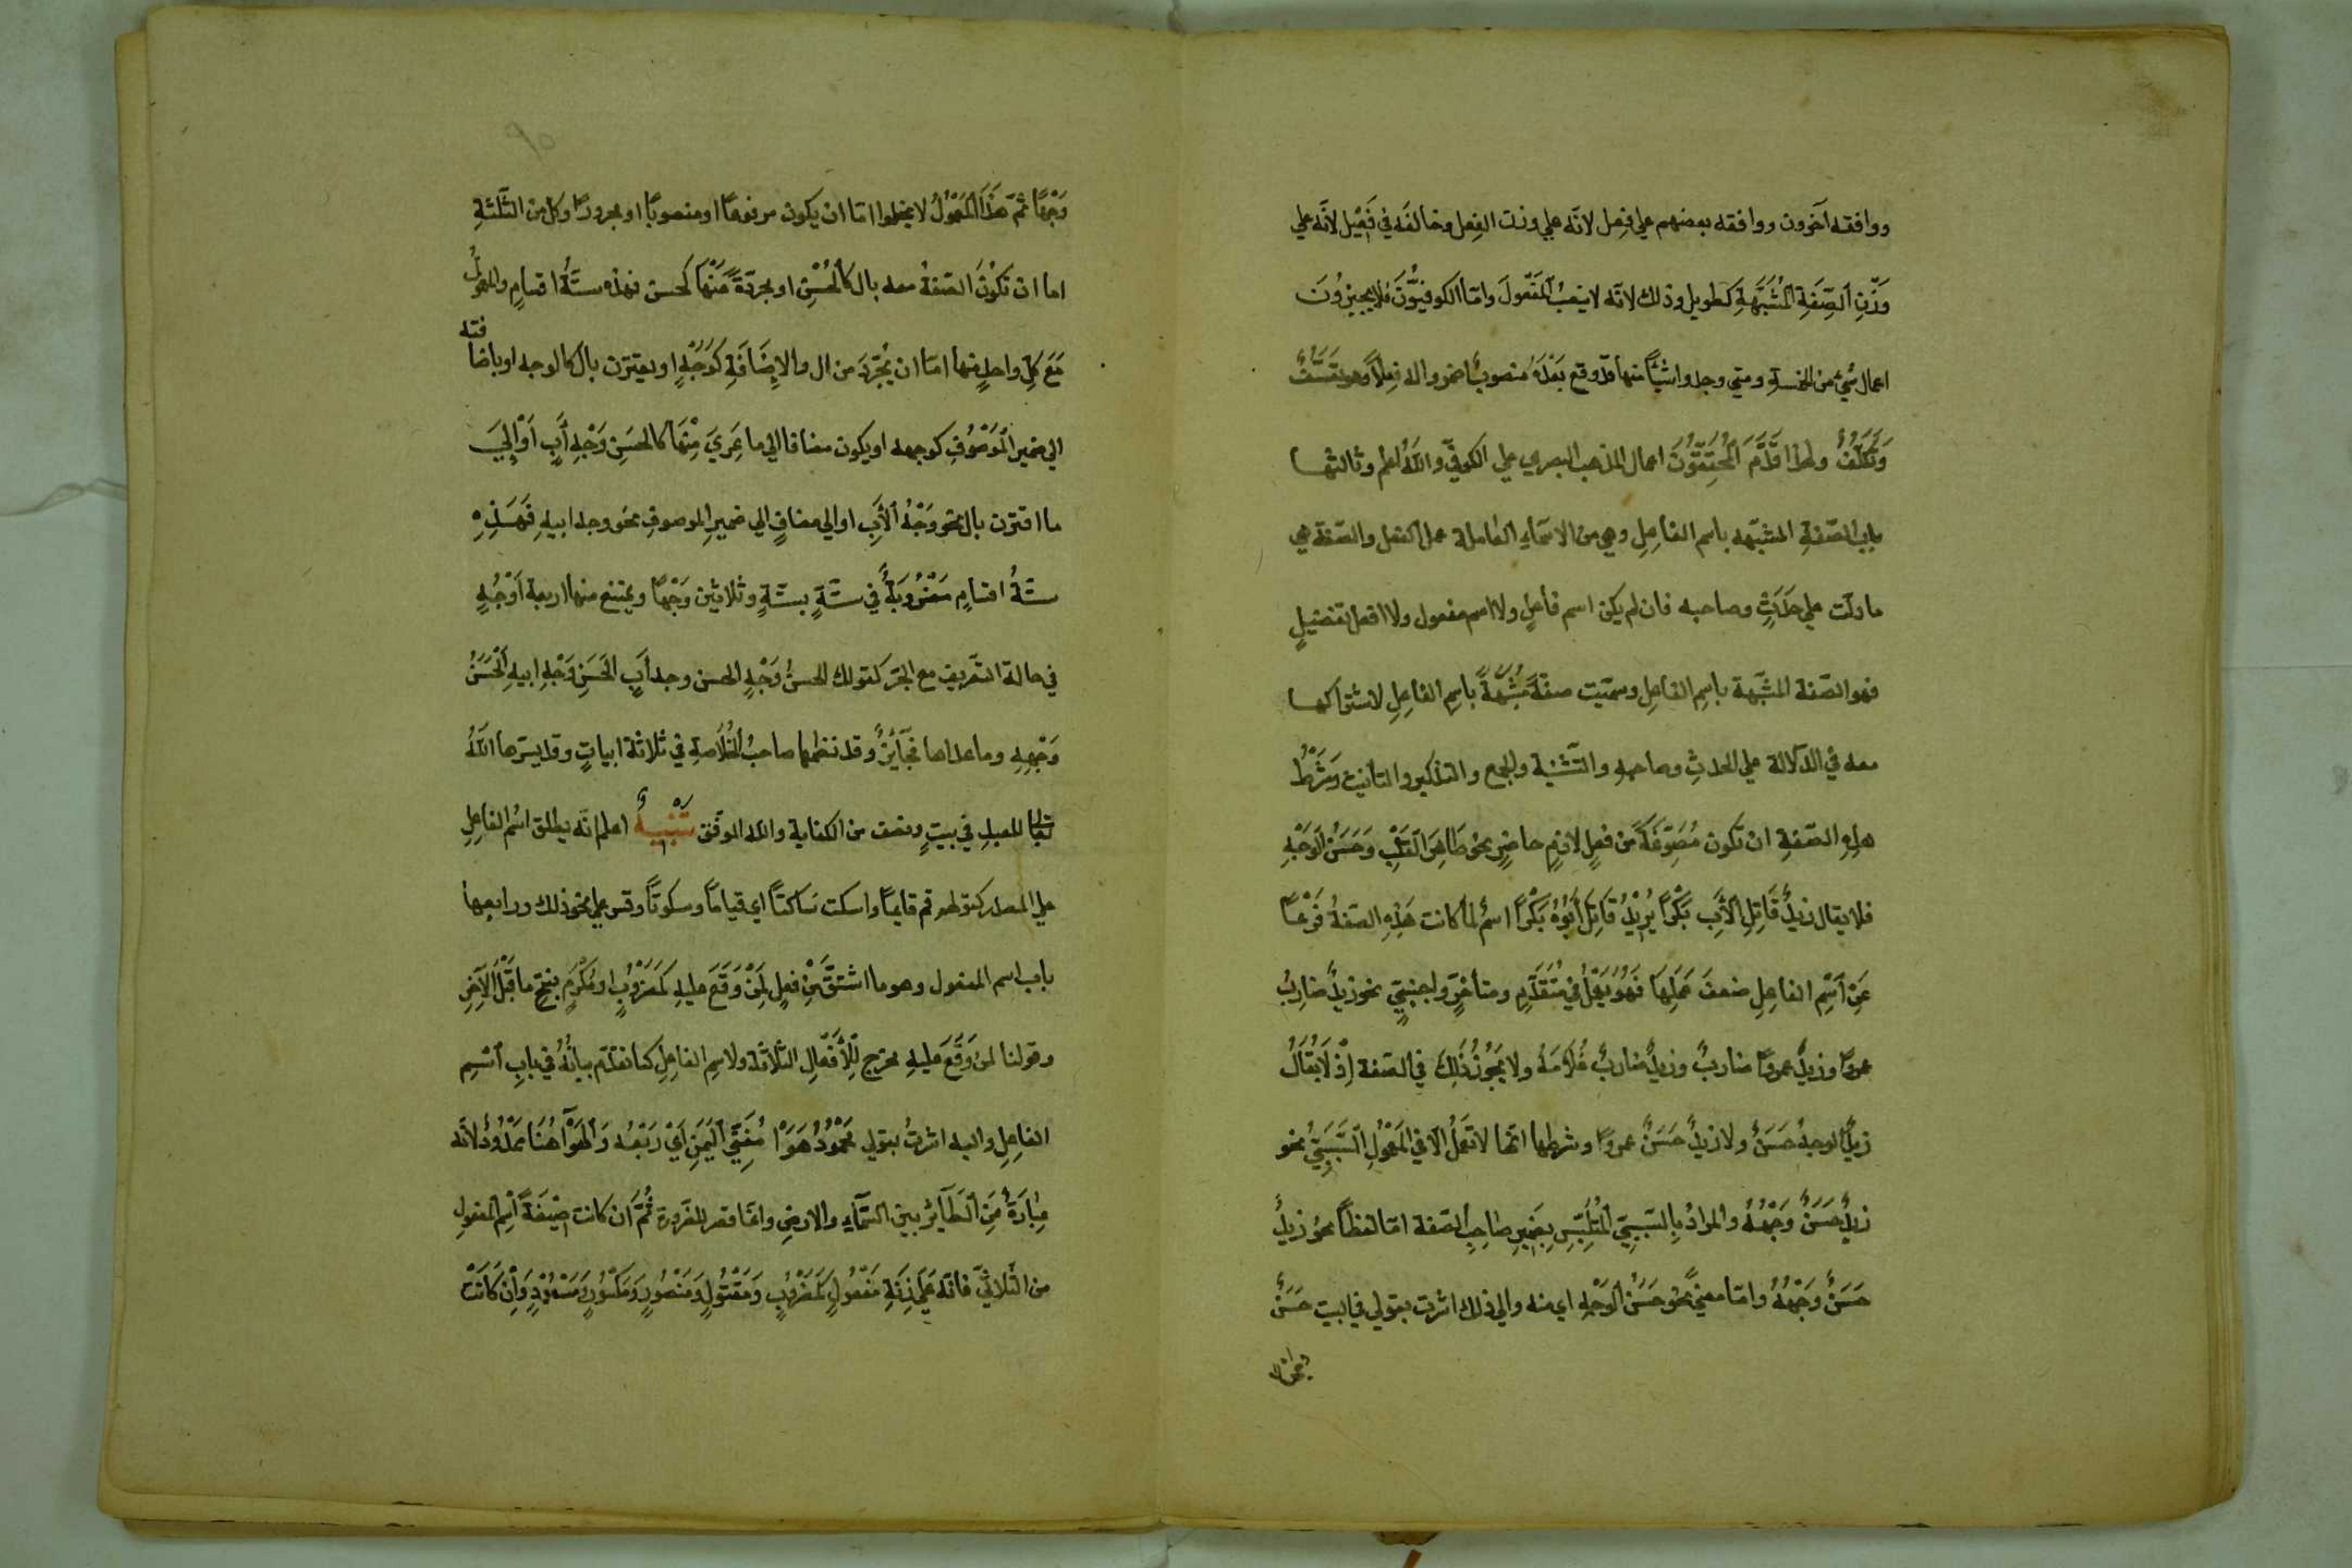 ووافقه آخرون ووافقه بعضهم علي فِعل لانّه علي وزن الفِعل وخالفَه في فَعِيْل لانّه علي
وَزْنِ اَلصِّفَةِ اَلْمُشَبَّهَةِ كطويل وذلك لانّه لا ينصبُ اَلمَفعولَ وامّا الكوفيُّوْنَ فلا يجيزوُنَ
اعمال شيْءٍ من الخمسةِ ومتي وجدوا شيئًا منها قد وقع بَعْدَهُ منصوبٌ اضمروا له فِعلاً وهو تَعَسُّفٌ
وَتَكَلُّفٌ ولهذا قَدَّمَ اَلْمُحَقِّقُوْنَ اعمال المذهب البصري علي الكوفيِّ واللّٰهُ اعلم وثالثها
باب الصّفةِ المشبّهه باسم الفاعِلِ وهي من الاسمآءِ العاملة عمل الفعل والصّفة هي
ما دلّت علي حَدَثٍ وصاحبه فان لم يكن اسم فاعلٍ ولا اسم مفعول ولا افعل تفضيلٍ
فهو الصّفة المشبّهة باسِم الفاعِلِ وسمّيت صفةً مُشَبَّهَةً باسِمِ الفاعِلِ لاشتراكها
معه في الدّلالة علي الحدثِ وصاحبهِ والتّثنية والجمع والتذكير والتانيث وَشَرْطُ
هذِهِ الصّفةِ ان تكون مَصُوْغَةً من فعلٍ لازمٍ حاضرٍ نحو طَاهِرَ القَلْبِ وَحَسَنُ اَلوَجْهِ
فلا يقال زيدٌ قَاتِلِ اَلْأَبِ بَكْرًا يُرِيْدُ قَاتِلَ أَبُوْهُ بَكْرًا اسمٌ لمّا كانت هَذِهِ الصّفةُ فَرْعًا
عَنِ اَسْمِ الفاعِلِ ضعفَ عَمَلِهَا فَهُوَ يَعْمَلُ في مُتَقَدِّمٍ ومتأخرٍّ واجنبيٍّ نحو زيدٌ ضارِبٌ
عمروًا وزيدٌ عمروًا ضاربٌ وزيدٌ ضاربٌ غُلَامَهُ ولا يَجُوْزُ ذَلِكَ في الصّفة اِذْ لَا يُقَالُ
زيدٌ الوجهُ حَسَنٌ ولا زيدٌ حَسَنٌ عمروًا وشرطها انّها لا تَعْمَلُ الّا في المَعْمُوْلِ اَلسَّبَبِيِّ نحو
زيدٌ حَسَنٌ وَجْهُهُ والمرادُ بِالسَّبَبِيِّ اَلْمُتَلَبِّسِ بِضَمِيرِ صاحِبِ الصّفة امّا لفظًا نحو زيدٌ
حَسَنٌ وَجْهُهُ وامّا معنًي نحو حَسَنُ اَلوَجْهِ اي منه والي ذلك اشرت بقولي في البيت حَسَنٌ
وَجْهًا ثُمَّ هَذَا اَلمَعْمُوْلُ لا يخلوا امّا ان يكون مرفوعًا او منصوبًا او مجرورًا وكل من الثّلثةِ
اما ان تكُوْنَ الصّفةُ معه بال كالحُسْنِ او مجرّدةً عَنْهَا كحسن فهذه ستّةُ اقسامٍ والمعمولُ
مَعَ كلِّ واحدٍ منها امّا ان يُجَرَّدَ من ال والاِضَافَةِ كَوَجْهٍ او يقترن بال كالوجه او باضافته
الي ضمير المَوْصُوْفِ كوجهه او يكون مضافا الي ما عَرِيَ مِنْهَا كالحسَنِ وَجْهِ أَبٍ اَوْ اِلَيَ
ما اقترن بال نحو وَجْهُ اَلْأَبِ او الي مضافٍ الي ضميرِ الموصوفِ نحو وجه ابيهِ فَهَذِهِ
ستّةُ اقسامٍ مَضْرُوْبَةٌ في ستّةٍ بستّةٍ وثلاثين وَجْهًا ويمتنع منها اربعة اَوْجُهٍ
في حالة التّعريف مع الجرّ كقولك الحسنُ وَجْهٍ الحسن وجه أَبٍ الحَسَنِ وَجْهِ ابيهِ اَلْحَسَنُ
وَجْهِهِ وما عداها فَجَآئِزٌ وقد نظمها صاحبُ الخُلَاصةِ في ثلاثة ابياتٍ وقد يسّرها اللّٰهُ
تعالي للعبدِ في بيتٍ ونصف من الكفاية واللّٰه الموفّق تَنْبِيْهٌ اعلم انّه يطلق اسْمُ الفاعِلِ
علي المصدر كقولهم قم قايمًا واسكت ساكتًا اي قيامًا وسكوتًا وقس علي نحو ذلك ورابعها
باب اسم المفعول وهو ما اشتقَّ مِنْ فعلٍ لمَنْ وَقَعَ عليهِ كمَضْرُوْبٍ او مُكْرَمٍ بفتحِ ما قَبْلَ اَلآخِرِ
وقولنا لمن وَقَعَ عليهِ مخرج لِلْأَفْعَالِ الثّلاثة ولاسمِ الفاعِلِ كما تقدّم بيانُهُ في بابِ اَسْمِ
الفاعِلِ واليه اشرتُ بقولي مَحْمُوْدُ هَوَا مُغْنِيَّ اَليَمَنِ اَيْ رَبْعُه وَاَلهَوَآ هُنَا مَمْدُوْدٌ لانّه
عِبَارَةٌ مِنَ اَلطَّآئِرْ بين السَّمَآءِ والارضِ وانّما قصر للضّرورة ثُمَّ ان كانت صِيْغَةُ اَسْمِ المفعولِ
من الثُّلاثيِّ فانّه عَلَي زِنَةِ مَفْعُولٍ كَمَضْرُوْبٍ وَمَقْتُوْلٍ وَمَنْصُوْرٍ وَمَكْسُوْرٍ وَمَسْعُوْدٍ وَاِنْ كَانَتْ